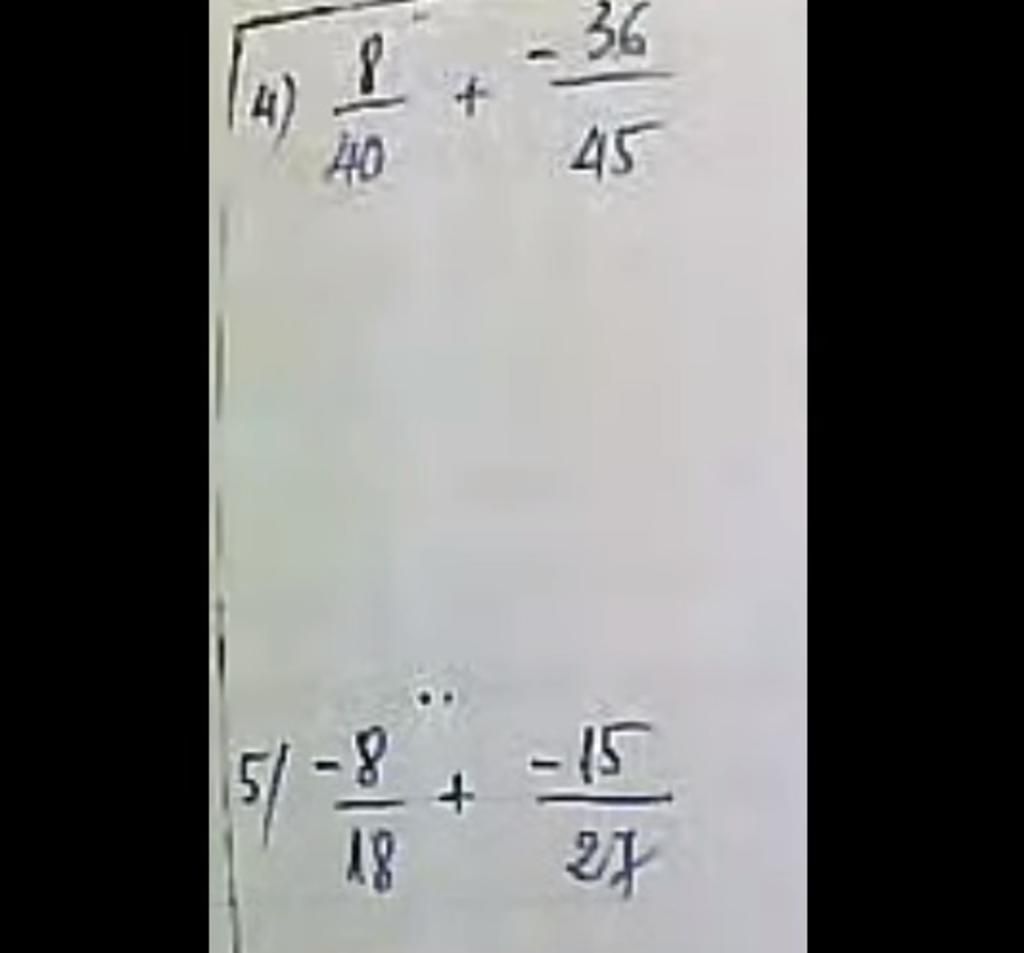 4) 8/40 + -36/45
5/ -8/18 + -15/27